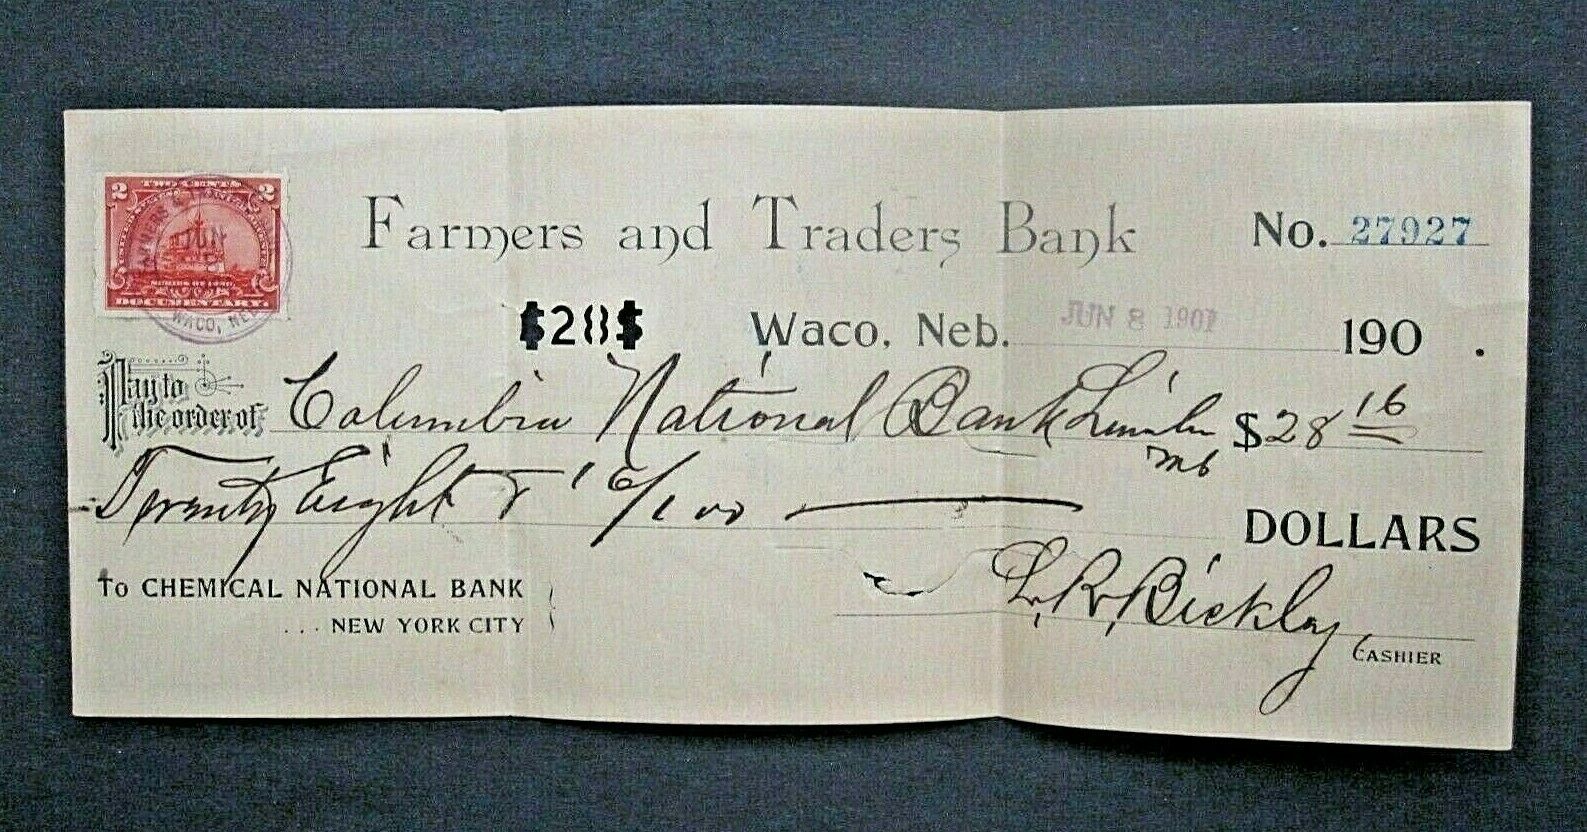 2 TWO CENTS 2
SERIES OF 1898
DOCUMENTARY.
FARMERS & TRADERS
JUN
WACO, NEB.
Farmers and Traders Bank No. 27927
$28$ Waco, Neb. JUN 8 1901 190 .
Pay to the order of Columbia National Bank Lincoln $28 16
Neb
Twenty Eight & 16/100 DOLLARS
To CHEMICAL NATIONAL BANK
... NEW YORK CITY
L. R. Bickley,
CASHIER